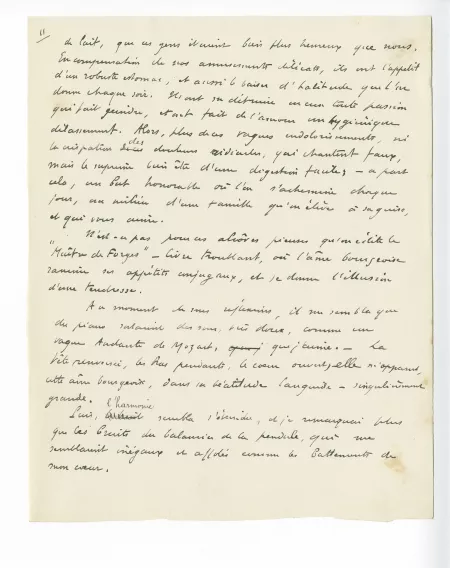 11
de lait, que ces gens étaient bien plus heureux que nous.
En compensation de nos amusements délicats, ils ont l'appétit
d'un robuste estomac, et aussi le baiser d'habitude que l'on
donne chaque soir. Ils ont su détruire en eux toute passion
qui fait geindre, et ont fait de l'amour un hygiénique
délassement. Alors, plus de ces vagues endolorissements, ni
la crispation des douleurs ridicules, qui chantent faux,
mais le suprême bien être d'une digestion facile; — à part
cela, un but honorable où l'on s'achemine chaque
jour, au milieu d'une famille qu'on élève à sa guise,
et qui vous aime.
N'est-ce pas pour ces pieuses qu'on édite le
"Maître de Forges" — livre troublant, où l'âme bourgeoise
ranime ses appétits conjugaux, et se donne l'illusion
d'une tendresse.
Au moment de mes réflexions, il me sembla que
du piano sortaient des sons, très doux, comme un
vague Andante de Mozart, que j'aime. — La
tête renversée, les bras pendants, le cœur ouvert, elle m'apparut,
cette âme bourgeoise, dans sa béatitude languide — singulièrement
grande.
Puis, l'harmonie sembla s'éteindre, et je ne remarquai plus
que les bruits du balancier de la pendule, qui me
semblaient inégaux et affolés comme les battements de
mon cœur.